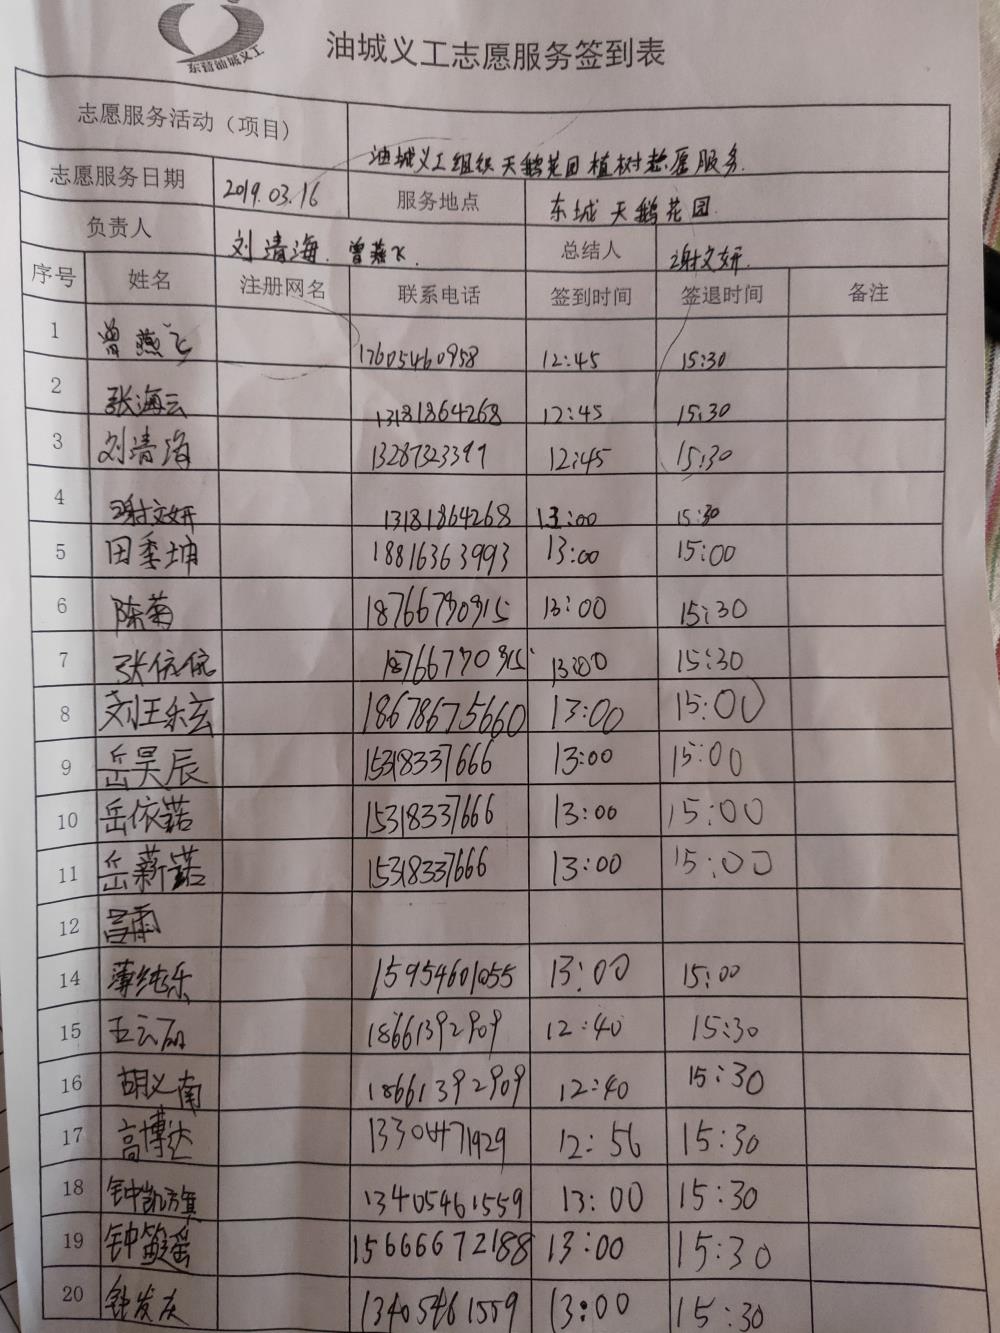 东营油城义工
油城义工志愿服务签到表
志愿服务活动（项目） 油城义工组织天鹅花园植树志愿服务.
志愿服务日期 2019.03.16 服务地点 东城天鹅花园.
负责人 刘清海. 曾燕飞. 总结人 谢文妍.
序号 姓名 注册网名 联系电话 签到时间 签退时间 备注
1 曾燕飞 17605460958 12:45 15:30
2 张海云 13181864268 12:45 15:30
3 刘清海 13287323397 12:45 15:30
4 谢文妍 13181864268 13:00 15:30
5 田季坤 18816363993 13:00 15:00
6 陈菊 18766790915 13:00 15:30
7 张依侬 18766790915 13:00 15:30
8 刘王乐玄 18678675660 13:00 15:00
9 岳昊辰 15318337666 13:00 15:00
10 岳依诺 15318337666 13:00 15:00
11 岳薪诺 15318337666 13:00 15:00
12 吕雨
14 薄纯乐 15954601055 13:00 15:00
15 18661392909 12:40 15:30
16 胡义南 18661392909 12:40 15:30
17 高博达 13304471929 12:56 15:30
18 钟凯旗 13405461559 13:00 15:30
19 钟 瑶 15666672188 13:00 15:30
20 钟发 13405461559 13:00 15:30